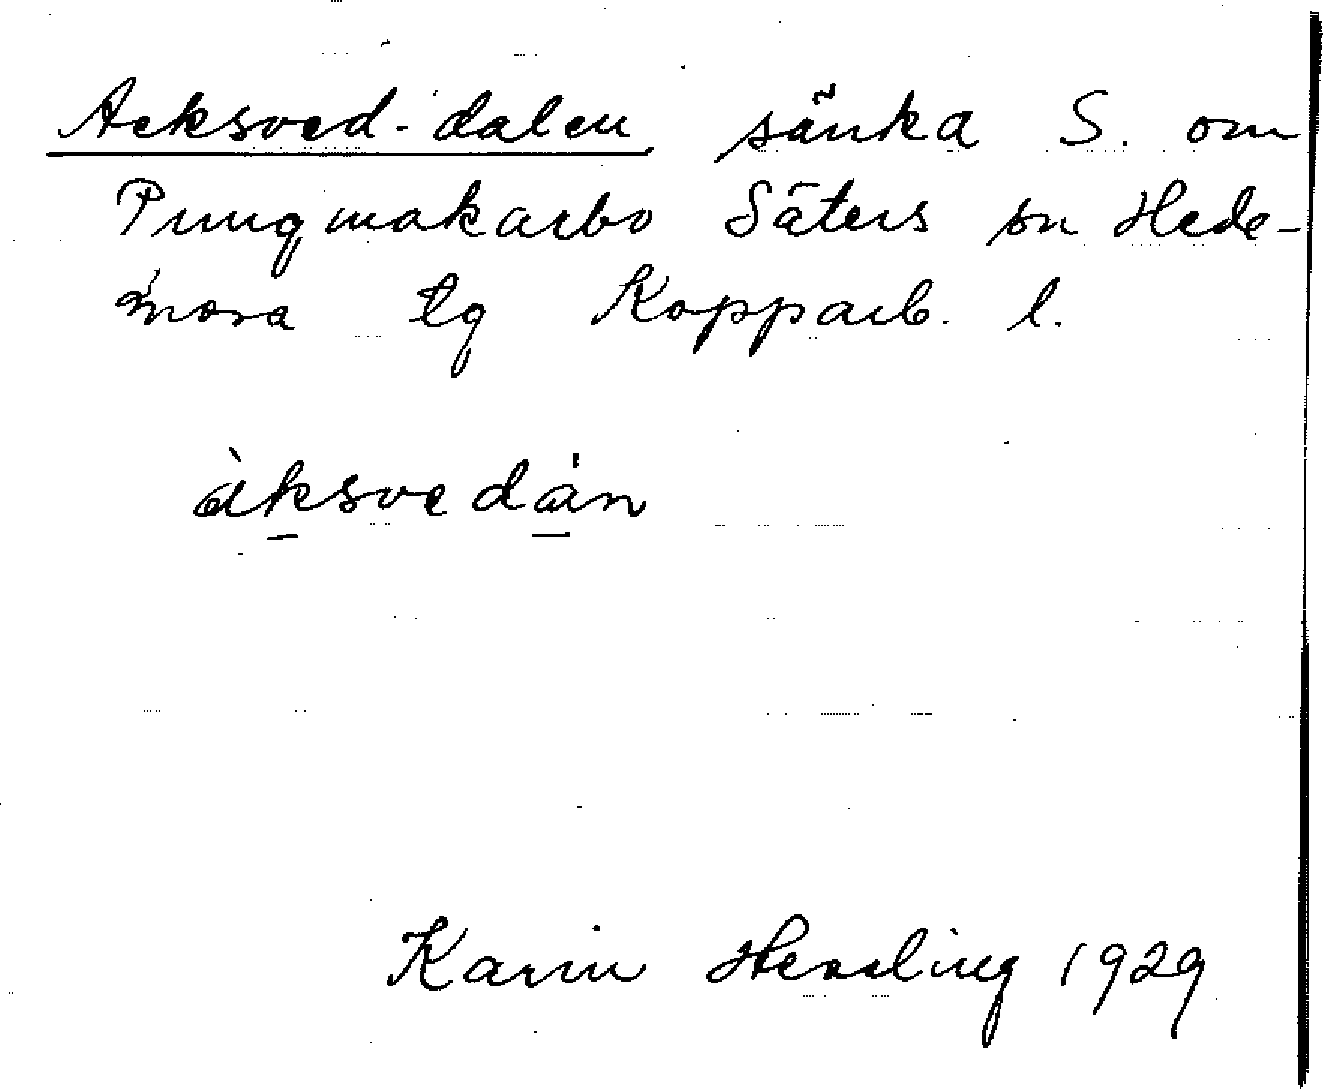 Acksved-dalen sänka S. om
Pungmakarbo Säters sn Hede-
mora tg Kopparb. l.
àksvedán
Karin 1929